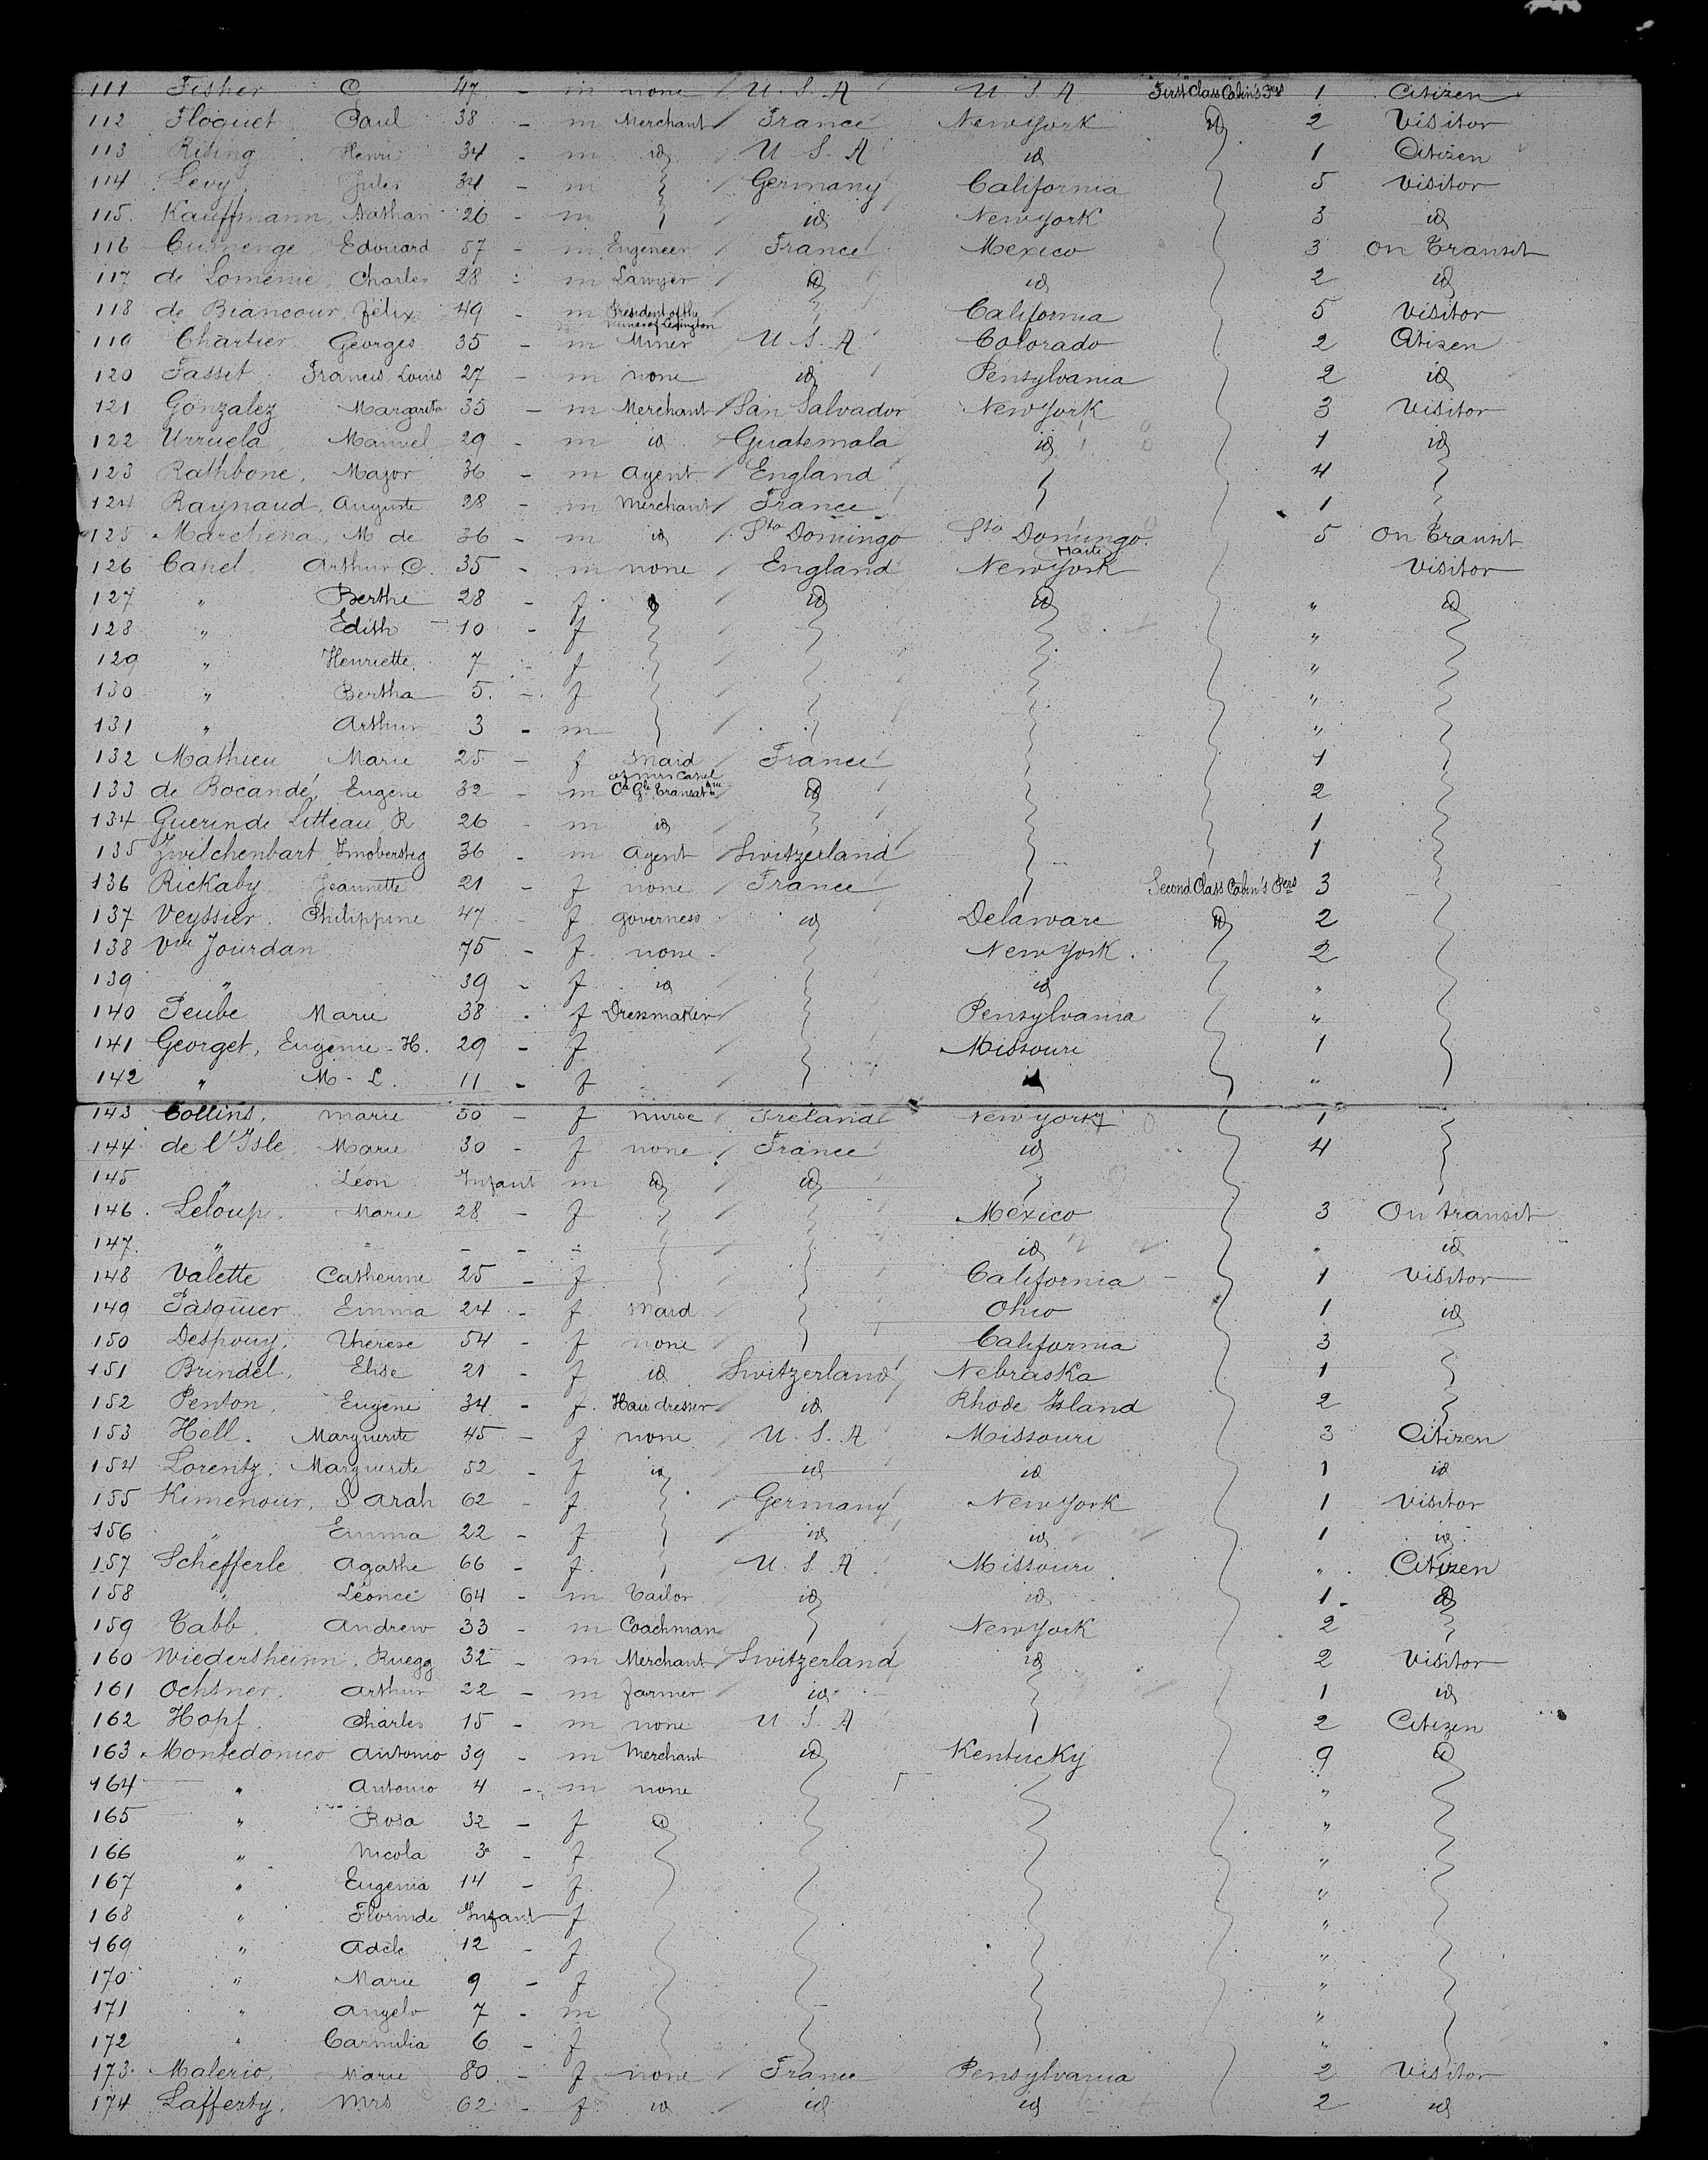 111 Fisher C 47 - m none U. S. A U. S. A First Class Cabin's Pers 1 Citizen
112 Floquet Paul 38 - m Merchant France New York id 2 Visitor
113 Rising Henri 34 - m id U S. A id 1 Citizen
114 Levy Jules 34 - m Germany California 5 Visitor
115. Kauffmann, Nathan 26 - m id New York 3 id
116 Cumenge Edouard 57 - m Engeneer France Mexico 3 on Transit
117 de Lomenie, Charles 28 - m Lawyer id id 2 id
118 de Biancour, Félix 49 - m President of the mines of Lexington California 5 Visitor
119 Chartier Georges 35 - m Miner U S. A Colorado 2 Citizen
120 Fassit Francis Louis 27 - m none id Pensylvania 2 id
121 Gonzalez Margarito 35 - m Merchant San Salvador New York 3 Visitor
122 Urruela, Manuel 29 - m id Guatemala id 1 id
123 Rathbone, Major 36 - m Agent England 4
124 Raynaud, Auguste 28 - m Merchant France 1
125 Marchena, M de 36 - m id Sto Domingo Sto Domingo. Haiti 5 On Transit
126 Capel. Arthur C. 35 - m none England New York Visitor
127 " Berthe 28 - f id id id " id
128 " Edith 10 - f "
129 " Henriette. 7 - f "
130 " Bertha 5. - f "
131 " Arthur 3 - m "
132 Mathieu Marie 25 - f Maid of Mrs Capel France 1
133 de Bocandé, Eugène 32 - m Cie Gle Transatque id 2
134 Guerin de Litteau R 26 - m id 1
135 Zwilchenbart Imobersteg 36 - m Agent Switzerland 1
136 Rickaby Jeannette 21 - f none France Second Class Cabin's Pers 3
137 Veyssier. Philippine 47 - f governess id Delaware id 2
138 Vve Jourdan 75 - f. none New York. 2
139 " 39 - f id id "
140 Peube Marie 38 - f Dressmaker Pensylvania "
141 Georget, Eugenie-H. 29 - f Missouri 1
142 " M-L. 11 - f id "
143 Collins, Marie 50 - f nurse Ireland New York 1
144 de l'Isle Marie 30 - f none France id 4
145 " Léon Infant m id id
146. Leloup. Marie 28 - f Mexico 3 On transit
147. " " - - id " id
148 Valette Catherine 25 - f California 1 Visitor
149 Pasquier Emma 24 - f Maid Ohio 1 id
150 Despouy, Therese 54 - f none California 3
151 Brindel, Elise 21 - f id Switzerland Nebraska 1
152 Penton, Eugène 34 - f. Hair dresser id Rhode Island 2
153 Hell. Marguerite 45 - f none U. S. A Missouri 3 Citizen
154 Lorentz, Marguerite 52 - f id id id 1 id
155 Kimenour, Sarah 62 - f. Germany New York 1 Visitor
156 " Emma 22 - f id id 1 id
157 Schefferle Agathe 66 - f. U. S. A Missouri " Citizen
158 " Léonce 64 - m Tailor id id 1 id
159 Tabb Andrew 33 - m Coachman New York 2
160 Wiedersheim, Ruegg 32 - m Merchant Switzerland id 2 Visitor
161 Ochsner, Arthur 22 - m farmer id 1 id
162 Hopf. Charles 15 - m none U. S. A 2 Citizen
163 Montedonico Antonio 39 - m Merchant id Kentucky 9 id
164 " Antonio 4 - m none "
165 " Rosa 32 - f id "
166 " Nicola 3 - f "
167 " Eugenia 14 - f "
168 " Florinde Infant f "
169 " Adele 12 - f "
170 " Marie 9 - f "
171 " Angelo 7 - m "
172 " Carmilia 6 - f "
173. Malerio, Marie 80 - f none France Pensylvania 2 Visitor
174 Lafferty. Mrs 62 - f. id id id 2 id